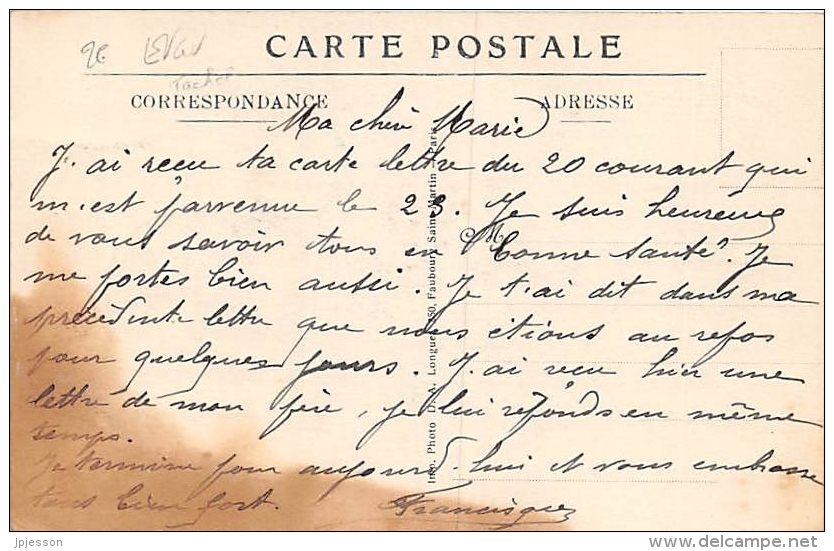 2€ 
CARTE POSTALE
CORRESPONDANCE ADRESSE
Ma chèr Marie
J'ai reçu ta carte lettre du 20 courant qui
m'est parvenue le 23. Je suis heureuse
de vous savoir tous en bonne santé. Je
me portes bien aussi. Je t'ai dit dans ma
précédente lettre que nous etions au repos
pour quelques jours. J'ai reçu hier une
lettre de mon père, je lui réponds en même
temps.
Je termine pour aujourd'hui et vous embrasse
tous bien fort. Francisque
Imp. Photo D. A. Longuet, 250, Faubourg Saint-Martin, Paris
jpjesson
delcampe.net